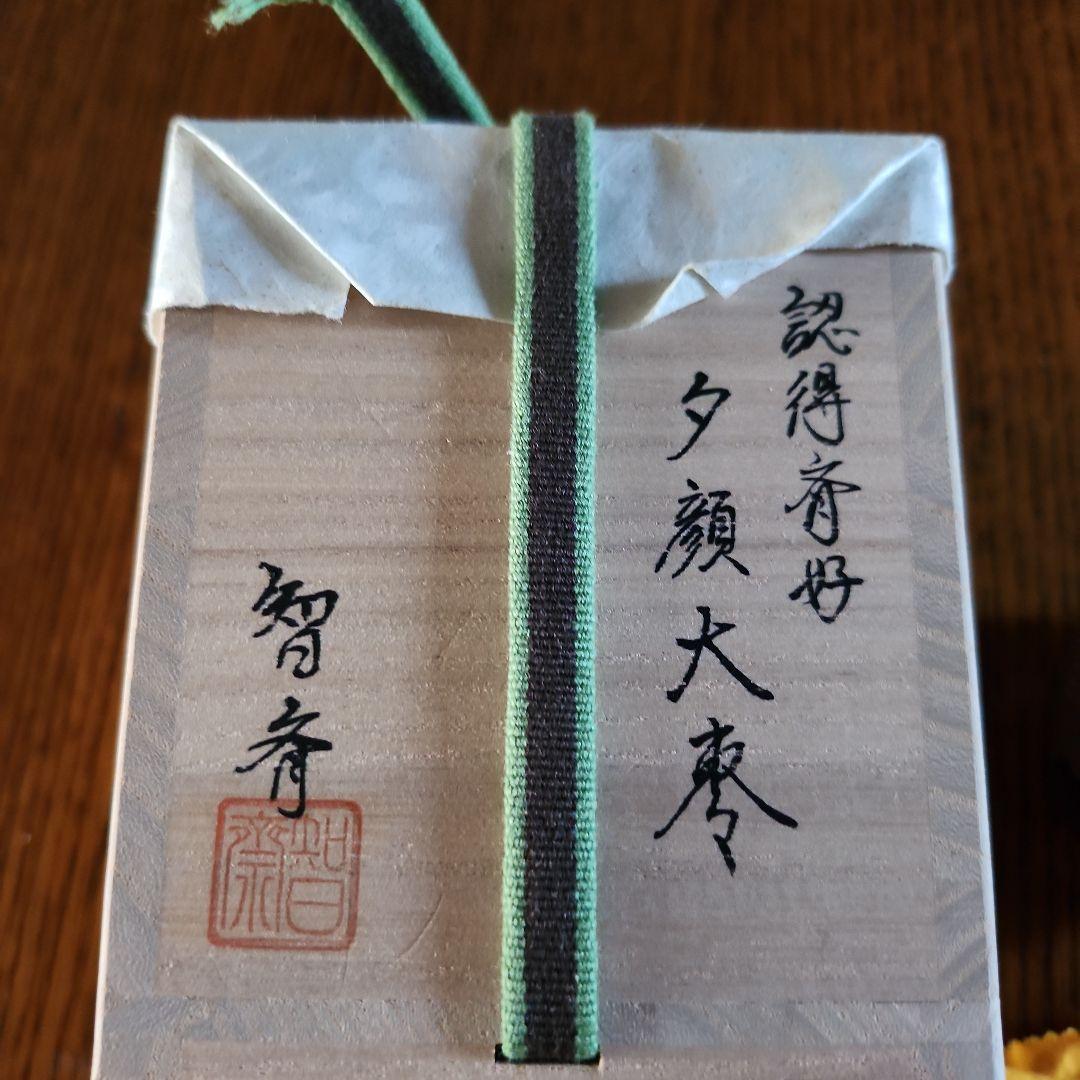 認得斎好
夕顔大棗
智斎
智齋